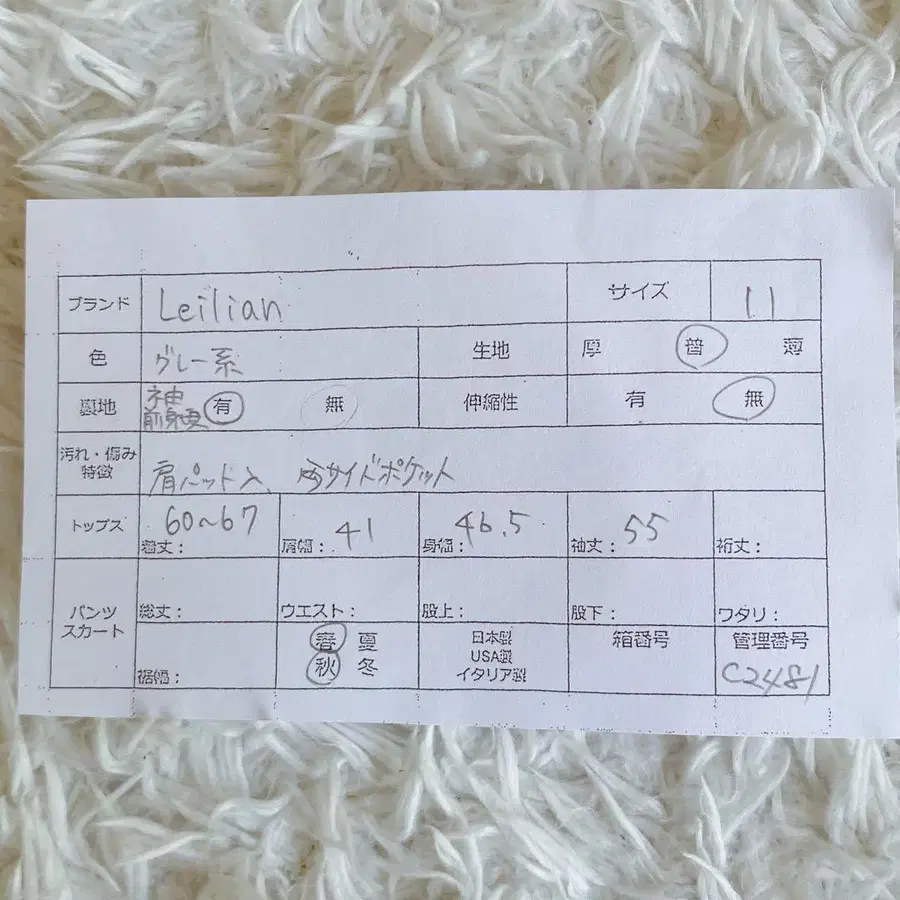 ブランド Leilian サイズ 11
色 グレー系 生地 厚 普 薄
裏地 袖 前身頃 有 無 伸縮性 有 無
汚れ・傷み
特徴 肩パット入、両サイドポケット
トップス 着丈: 60~67 肩幅: 41 身幅: 46.5 袖丈: 55 裄丈:
パンツ
スカート 総丈: ウエスト: 股上: 股下: ワタリ:
裾幅: 春 夏 秋 冬 日本製 USA製 イタリア製 箱番号 管理番号 C2481